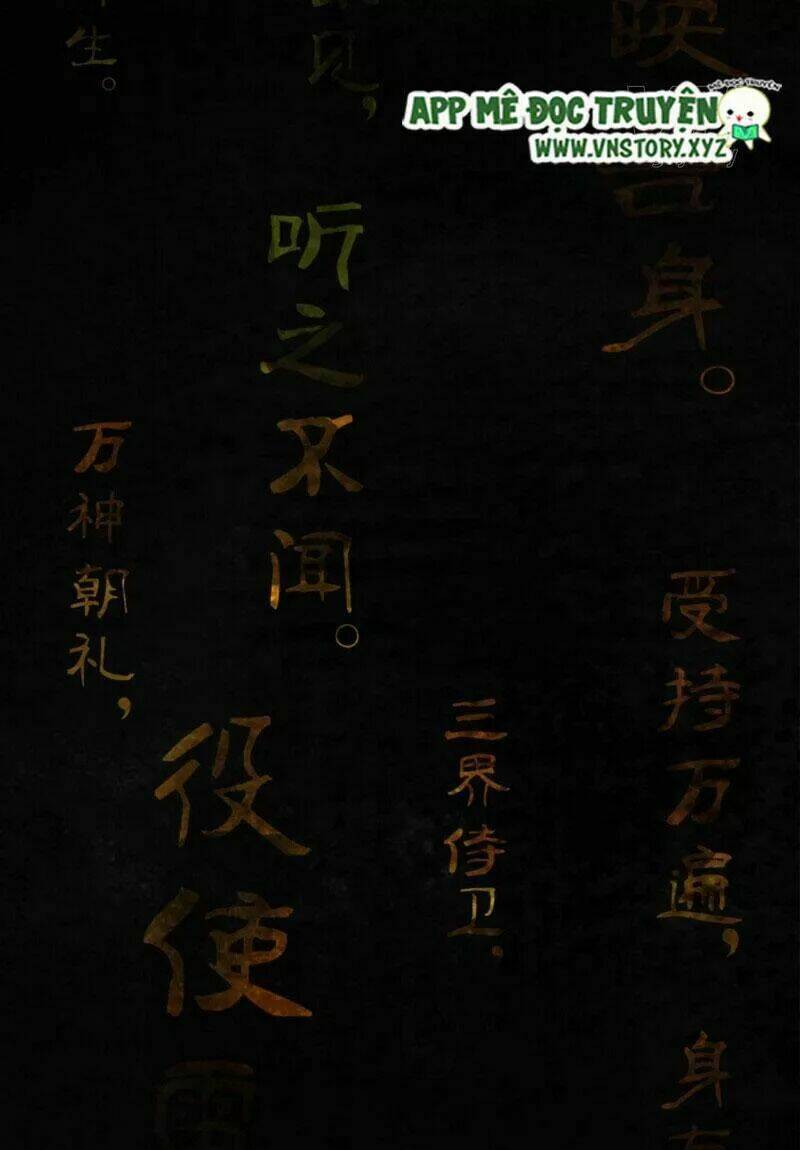 APP MÊ ĐỌC TRUYỆN
WWW.VNSTORY.XYZ
吾身。
受持万遍，
身有
三界侍卫，
见，
听之不闻。
役使雷
生。
万神朝礼，